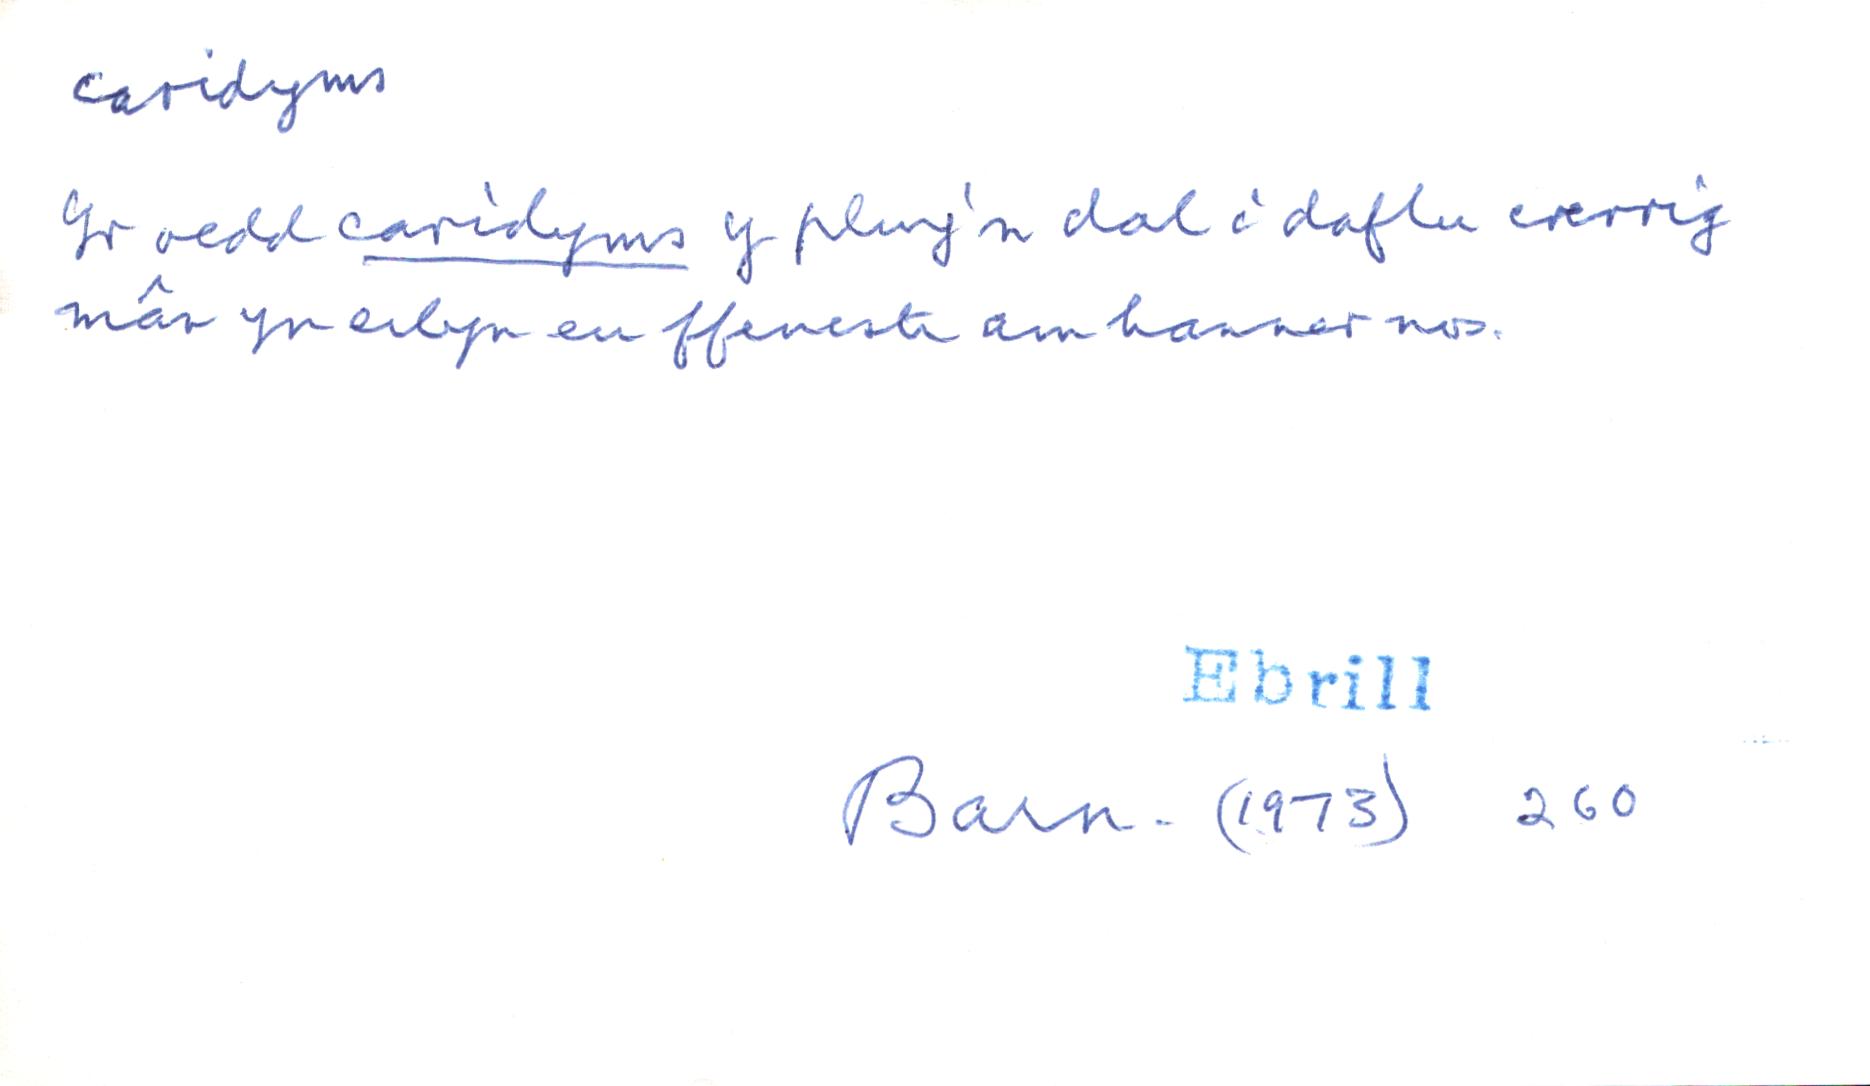 caridyms
Yr oedd caridyms y plwy'n dal i daflu cerrig
mân yn erbyn eu ffenestr am hanner nos.
Ebrill
Barn. (1973) 260